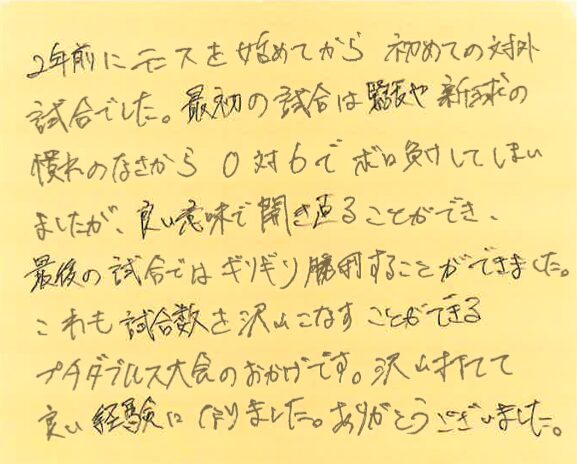 2年前にテニスを始めてから 初めての対外
試合でした。最初の試合は緊張や 新球の
慣れのなさから 0対6で ボロ負けしてしまい
ましたが、良い意味で開き直ることができ、
最後の試合ではギリギリ勝利することができました。
これも試合数を沢山こなすことができる
プチダブルス大会のおかげです。沢山打てて
良い経験になりました。ありがとうございました。